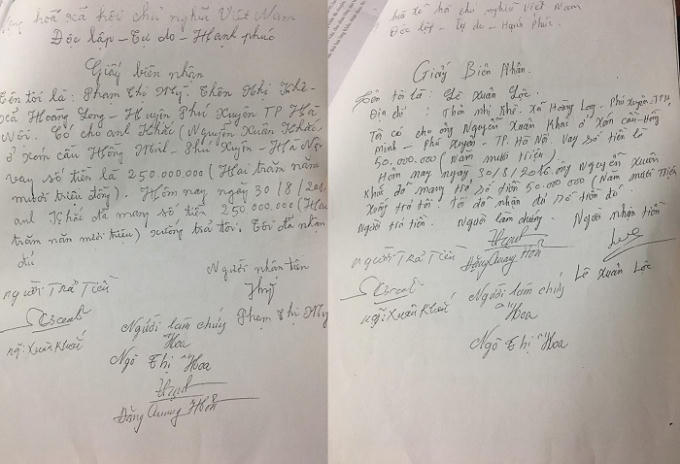 hoà xã hội chủ nghĩa Việt Nam
Độc lập - Tự do - Hạnh phúc
Giấy biên nhận
Tên tôi là: Phạm Thị Mỹ. Thôn Nhị Khê-
xã Hoàng Long - Huyện Phú Xuyên TP Hà
Nội. Có cho anh Khải (Nguyễn Xuân Khải)
ở xóm cầu Hồng Minh - Phú Xuyên - Hà Nội
vay số tiền là 250.000.000 (Hai trăm năm
mươi triệu đồng). Hôm nay ngày 30/8/
anh Khải đã mang số tiền 250.000.000 (Hai
trăm năm mươi triệu) xuống trả tôi. Tôi đã nhận
đủ
Người nhận tiền
Người Trả Tiền
Mỹ
Phạm Thị Mỹ
ng: Xuân Khải
Người làm chứng
Hoa
Ngô Thị Hoa
Đặng Quang
hoà xã hội chủ nghĩa Việt Nam
Độc lập - Tự do - Hạnh Phúc.
Giấy Biên Nhân.
Tên tôi là: Lê Xuân Lộc.
Địa chỉ: Thôn nhị Khê. Xã Hoàng Long. Phú Xuyên. TP HN
Tôi có cho ông Nguyễn Xuân Khải ở xóm cầu - Hồng
Minh - Phú Xuyên - TP. Hà Nội vay số tiền là
50.000.000 (Năm mươi triệu)
Hôm nay ngày 30/8/2016 ông Nguyễn Xuân
Khải đã mang trả số tiền 50.000.000 (Năm mươi triệu)
xuống trả tôi. Tôi đã nhận đủ số tiền đó.
Người trả tiền. Người làm chứng. Người nhận tiền
Người Trả Tiền
Đặng Quang
Lê Xuân Lộc
ng: Xuân Khải
Người làm chứng
Hoa
Ngô Thị Hoa